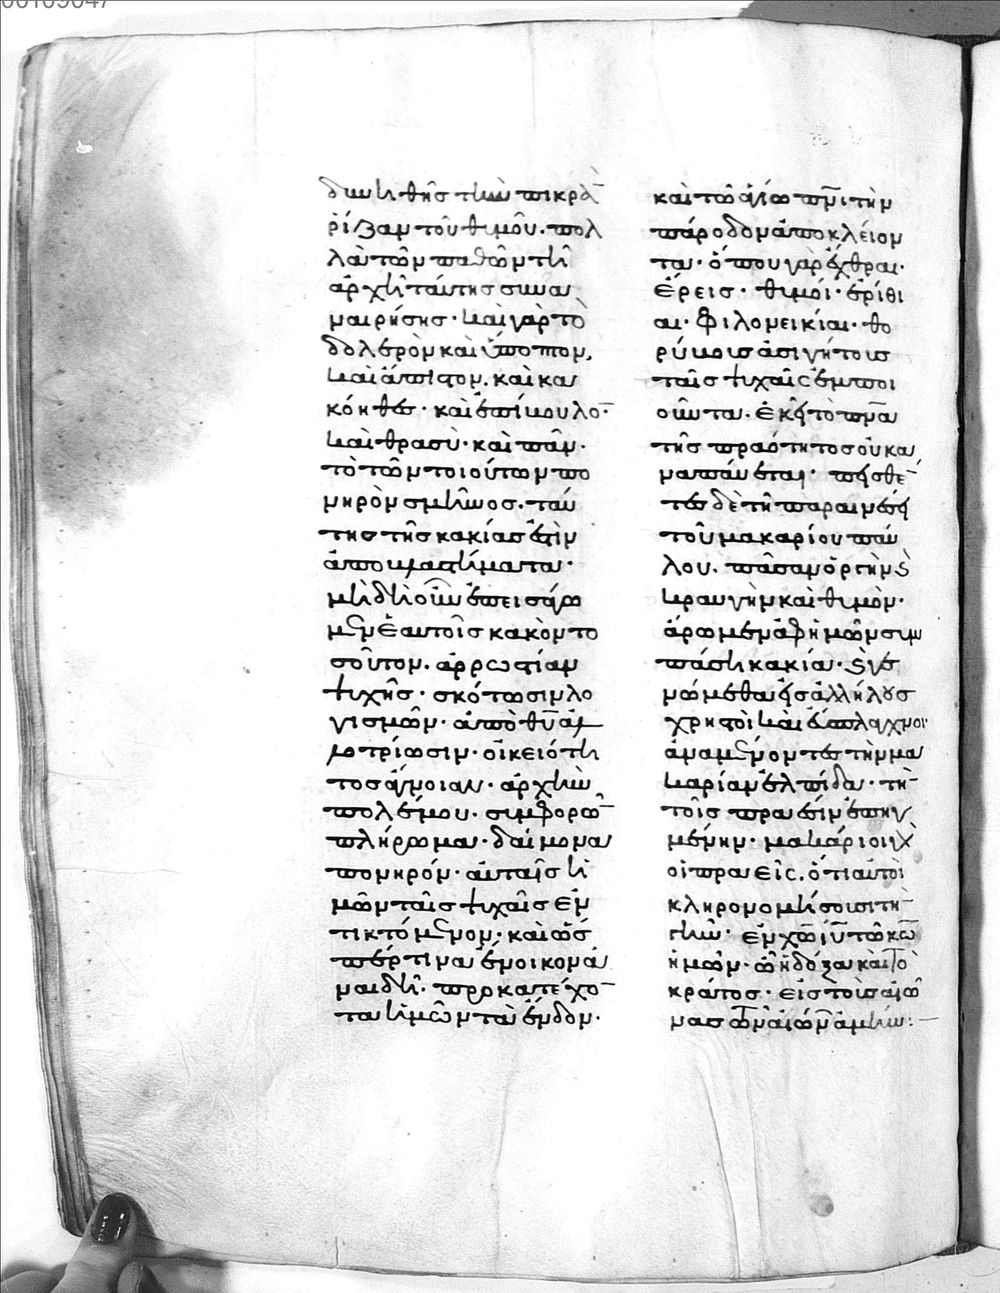 00109047
δυνηθῆς τὴν πικρὰ̄
ρίζαν τοῦ θυμοῦ. πολ
λὰ τῶν παθῶν τῆ
ἀρχῆ ταύτης συνα
ναιρήσης· καὶ γὰρ τὸ
δολερὸν καὶ ὕποπτον,
καὶ ἄπιστον. καὶ κα
κόηθες· καὶ ἐπίβουλο̄·
καὶ θρασύ· καὶ πᾶν·
τὸ τῶν τοιούτων πο
νηρὸν σμῆνος. ταύ
της τῆς κακίας ἐστὶν
ἀποβλαστήματα·
μὴ δὴ οὖν ἐπεισάγω
μεν ἑαυτοῖς κακὸν το
σοῦτον. ἀρρωστίαν
ψυχῆς· σκότωσιν λο
γισμῶν· ἀπὸ θῡ ἀλ
λοτρίωσιν· οἰκειότη
τος ἄγνοιαν· ἀρχὴν
πολέμου. συμφορῶ̄
πλήρωμα· δαίμονα
πονηρόν· αὐταῖς ἡ
μῶν ταῖς ψυχαῖς ἐν
τικτόμενον· καὶ ὥσ
περ τινα ἔνοικον ἀ
ναιδῆ· προκατέχο̄
τα ἡμῶν τὰ ἔνδον·
καὶ τῶ ἁγίω πν̄ι τὴν
πάροδον ἀποκλείον
τα· ὅπου γὰρ ἔχθραι·
ἔρεις· θυμοί· ἐρίθι
αι· φιλονεικίαι· θο
ρύβους ἀσιγήτους
ταῖς ψυχαῖς ἐμποι
οῦντα. ἐκεῖ τὸ πν̄α
τῆς πραότητος οὐκ ἀ
ναπαύεται· πεισθέ̄
τες δὲ τῆ παραινέσει
τοῦ μακαρίου παύ
λου. πᾶσαν ὀργὴν ϗ
κραυγὴν καὶ θυμὸν·
ἄρωμεν ἀφ' ἡμῶν σὺν
πάση κακία· ϗ γε
νώμεθα εἰς ἀλλήλους
χρηστοὶ καὶ εὔσπλαγχνοι·
ἀναμένοντες τὴν μα
καρίαν ἐλπίδα· τὴ̄
τοῖς πραέσιν ἐπηγ
μένην· μακάριοι γὰρ
οἱ πραεῖς. ὅτι αὐτοὶ
κληρονομήσουσι τὴ̄
γῆν· ἐν χῶ ιῦ τῶ κῶ
ἡμῶν· ὧ ἡ δόξα καὶ τὸ
κράτος· εἰς τοὺς αἰῶ
νας τῶν αἰώνων ἀμήν:—